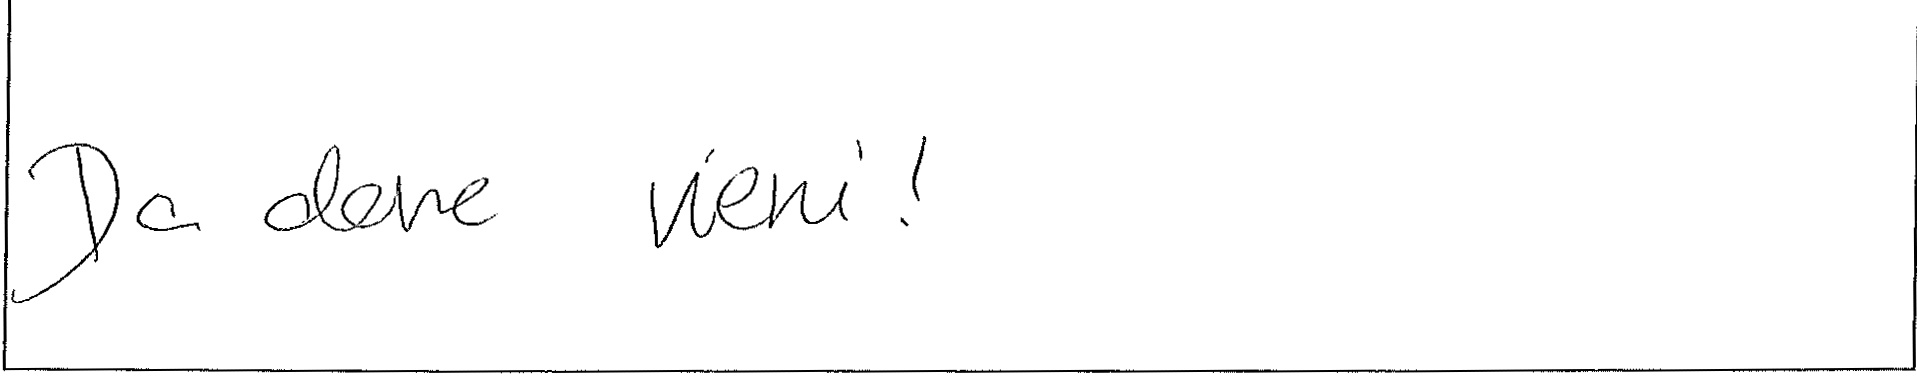 Da dove vieni!